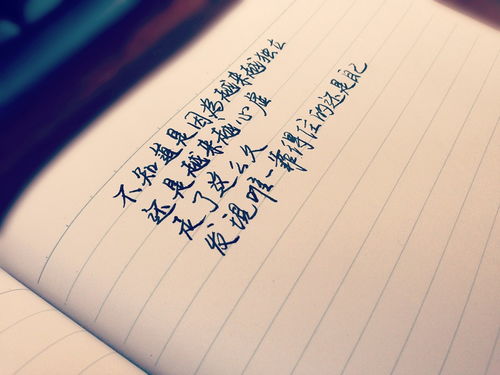 不知道是因为越来越独立
还是越来越心虚
走了这么久
发现唯一靠得住的还是自己